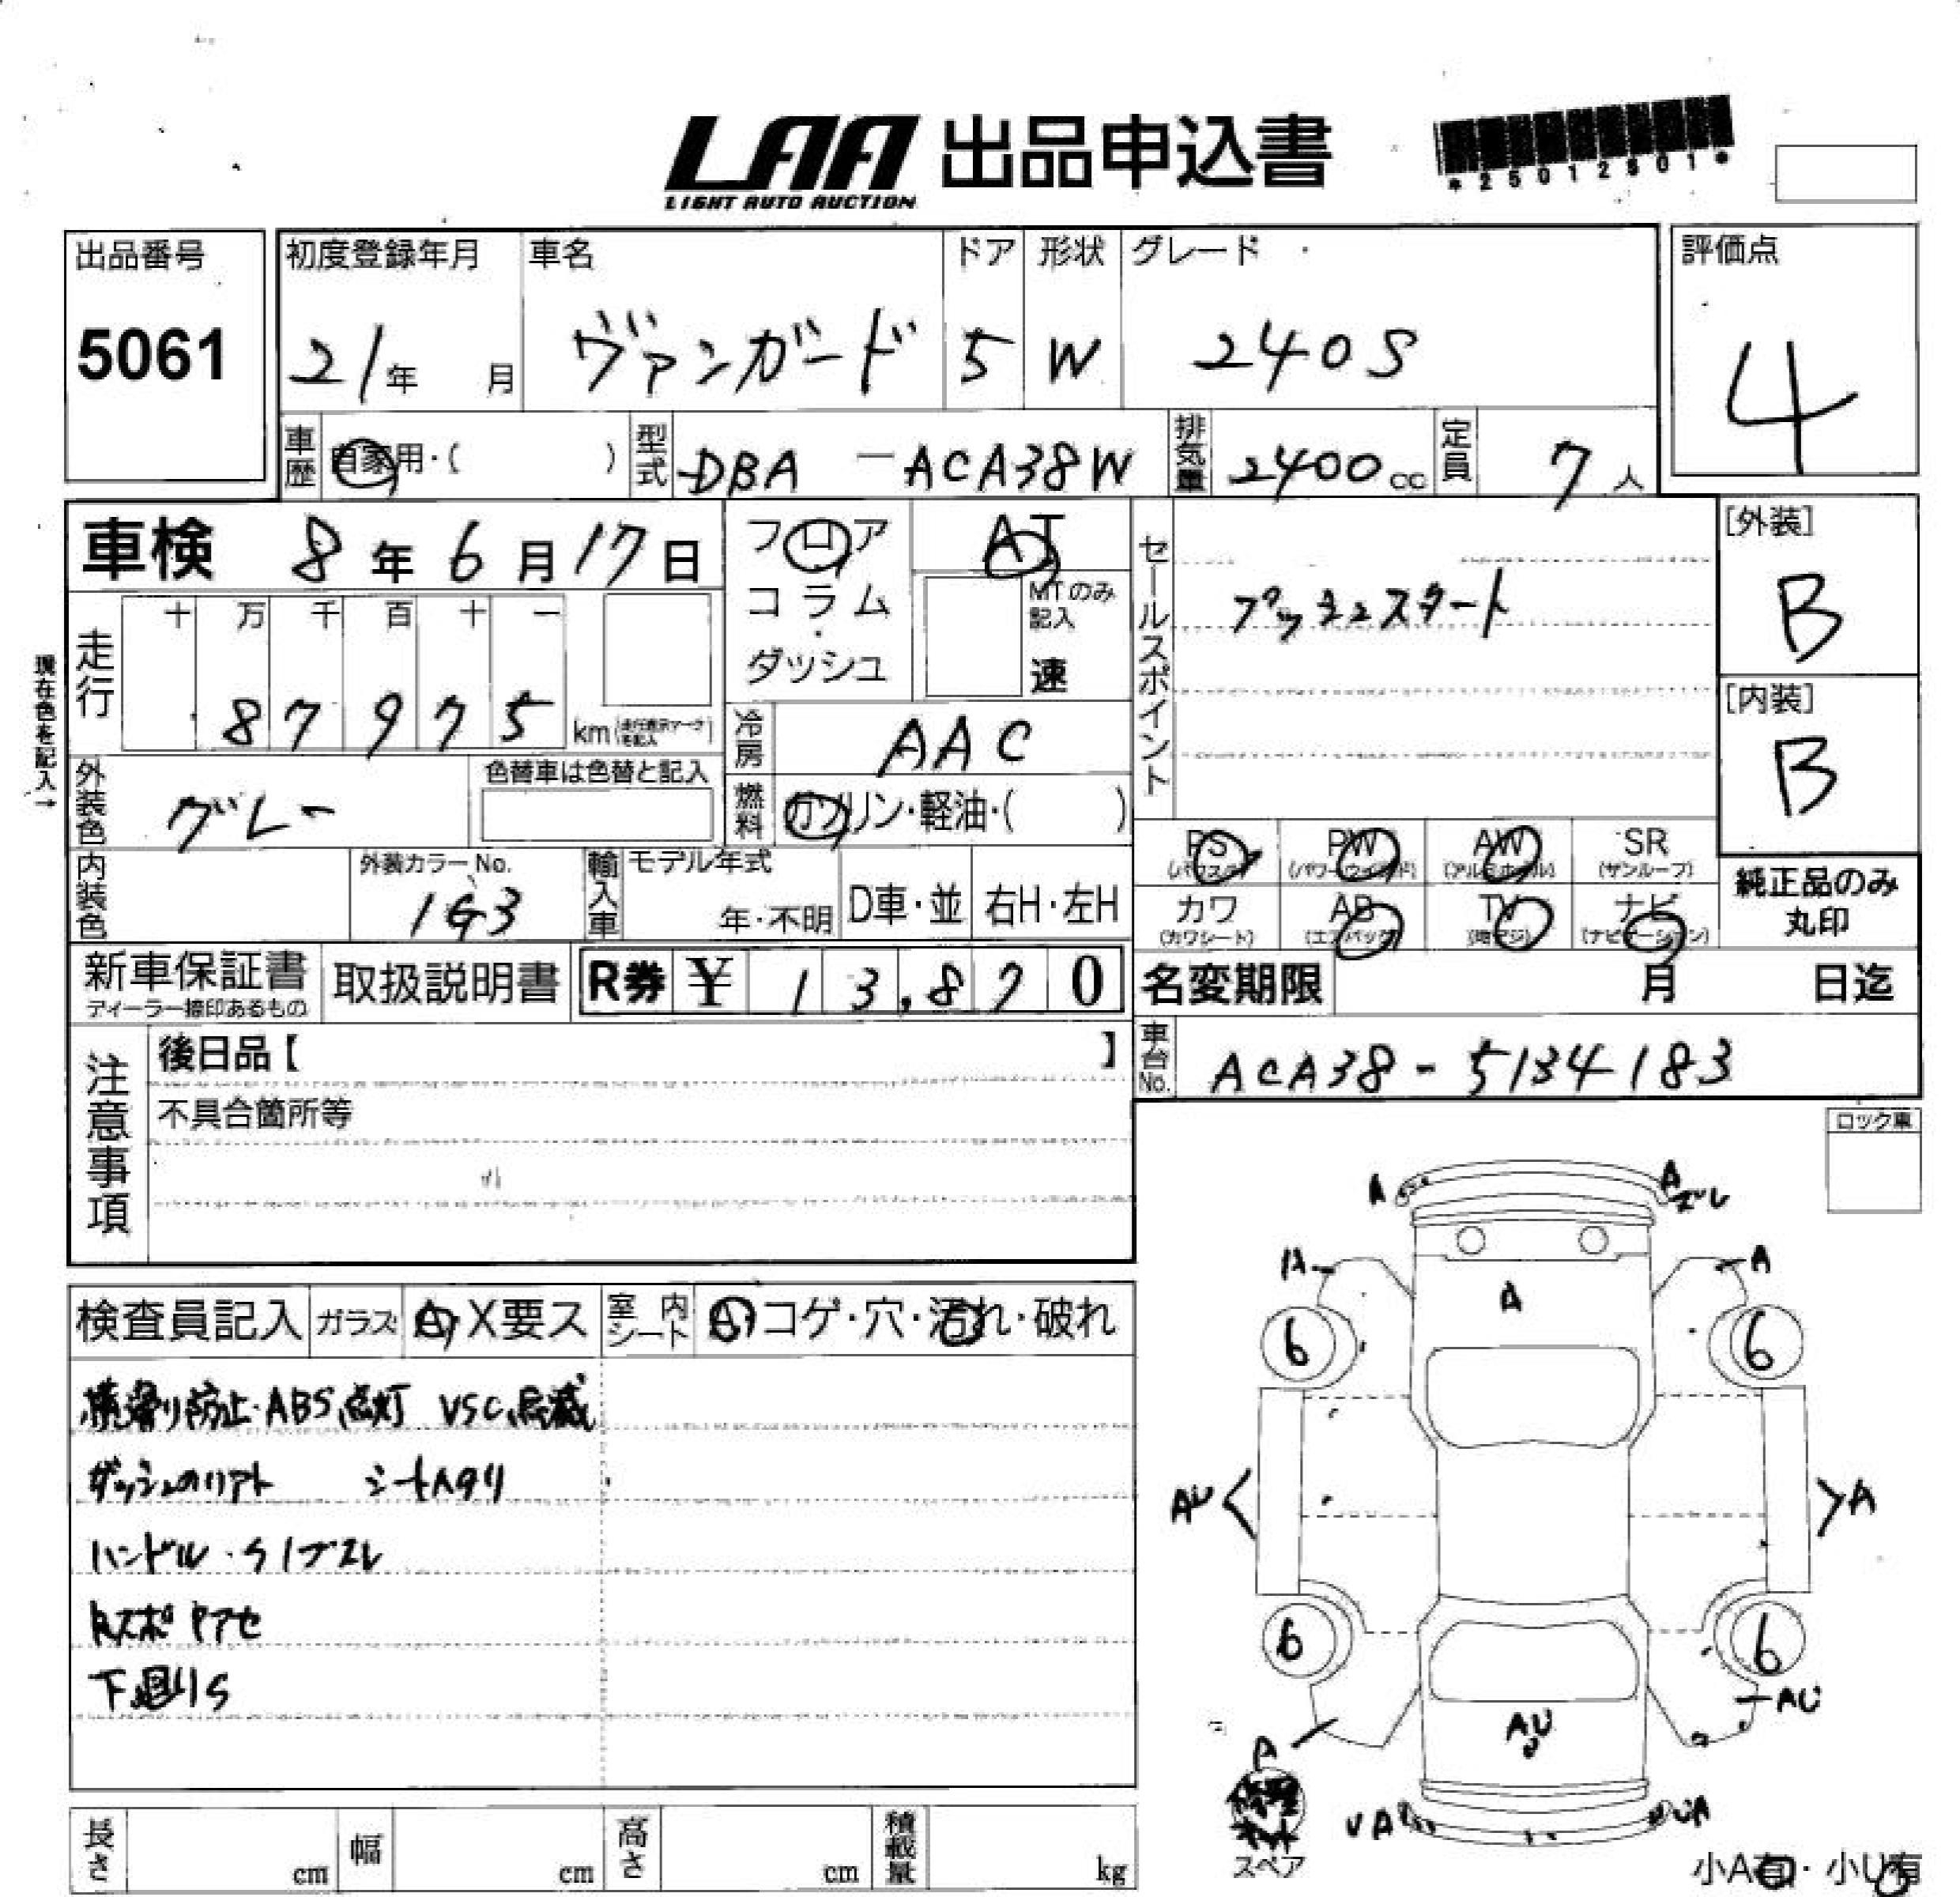 LAA 出品申込書
LIGHT AUTO AUCTION
*25012501*
出品番号
5061
初度登録年月
21年 月
車名
ヴァンガード
ドア
5
形状
W
グレード
240S
評価点
4
車歴 自家用・( )
型式 DBA -ACA38W
排気量 2400cc
定員 7人
車検 8年6月17日
フロア
コラム
・
ダッシュ
AT
MTのみ記入
速
セールスポイント
プッシュスタート
[外装]
B
[内装]
B
現在色を記入→
走行
十 万 千 百 十 一
8 7 9 7 5 km (走行表示マークを記入)
冷房 AAC
外装色 グレー
色替車は色替と記入
燃料 ガソリン・軽油・( )
内装色
外装カラーNo.
1G3
輸入車
モデル年式
年・不明
D車・並
右H・左H
PS (パワステ)
PW (パワーウィンド)
AW (アルミホイル)
SR (サンルーフ)
カワ (カワシート)
AB (エアバッグ)
TV (地デジ)
ナビ (ナビゲーション)
純正品のみ
丸印
新車保証書
ディーラー捺印あるもの
取扱説明書
R券 ¥ 13,870
名変期限 月 日迄
注意事項
後日品【 】
不具合箇所等
車台No. ACA38-5134183
ロック車
検査員記入
ガラス A・X要ス
室内シート
A・コゲ・穴・汚れ・破れ
横滑り防止・ABS点灯 VSC点滅
ダッシュのリアト シートヘタリ
ハンドル・ライブズレ
下廻りS
A
A
ズレ
A
A
A
6
6
AU
A
6
6
AU
A
AU
UA
UA
修理キット
スペア
小A有・小U有
長さ cm
幅 cm
高さ cm
積載量 kg